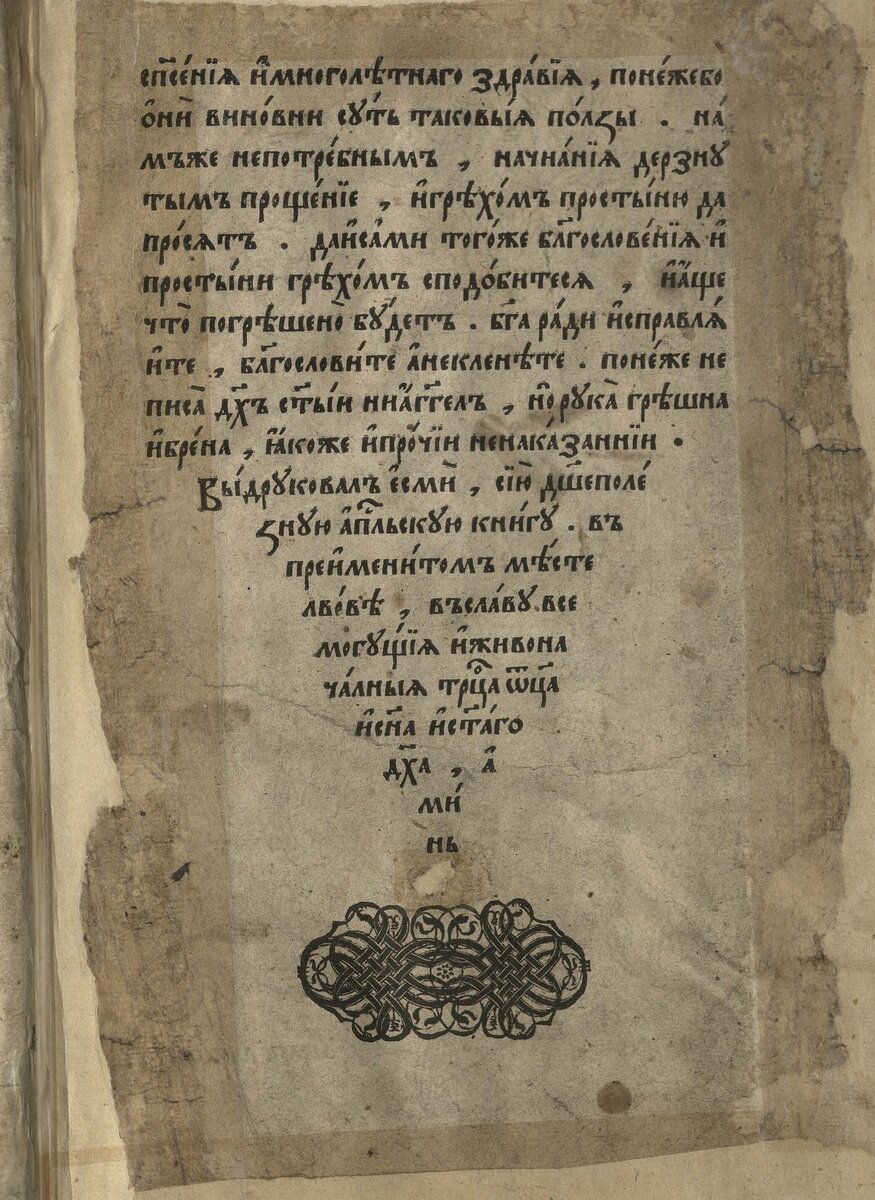 сп҃се́нїѧ и҆многолѣ́тнаго здра́вїѧ , поне́жебо
ѻ҆нѝ вино́вни сꙋ́ть таковы́ѧ по́лзы . на́
мъже непотре́бнымъ , начина́нїѧ дерзнꙋ
тымъ проще́нїе , и҆грѣхо́мъ просты́ню да
про́сѧтъ . даи҆са́ми того́же бл҃гослове́нїѧ и҆
просты́ни грѣхо́мъ сподо́битесѧ , и҆а҆́ще
что̀ погрѣшено̀ бꙋ́детъ . бг҃а ра́ди и҆справлѧ́
и҆те , бл҃гослови́те а҆некленѣ́те . поне́же не
писа̀ дх҃ъ ст҃ы́и ниа҆́гг҃елъ , но̀ рꙋка̀ грѣ́шна
и҆бре́на , ꙗ҆́коже и҆про́чїи ненака́заннїи .
Вы́дрꙋковалъ е҆смѝ , сїю̀ дш҃еполе́
знꙋю а҆пⷭ҇льскꙋю кни́гꙋ . въ
преи҆мени́томъ мѣ́сте
лво́вѣ , въсла́вꙋ все
могꙋ́щїѧ и҆живона
ча́лныѧ трⷪ҇ца ѿц҃а
и҆сн҃а и҆ст҃а́го
дх҃а , а҆
ми́
нь